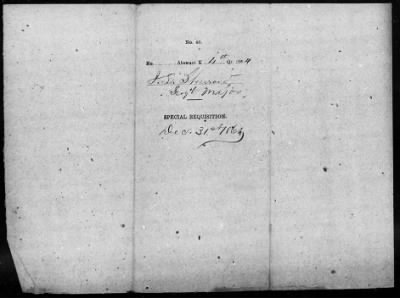 No. 40.
No. Abstract E 4th Qr. 1864
Sergt Major
SPECIAL REQUISITION.
Dec. 31st 1864